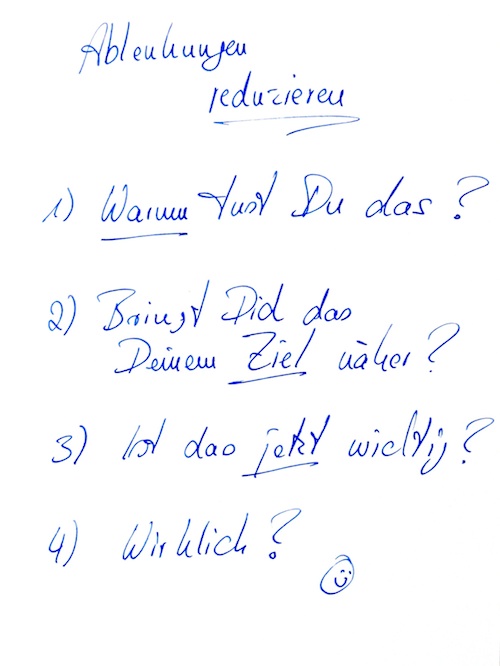 Ablenkungen
reduzieren
1) Warum tust Du das?
2) Bringt Dich das
Deinem Ziel näher?
3) Ist das jetzt wichtig?
4) Wirklich?